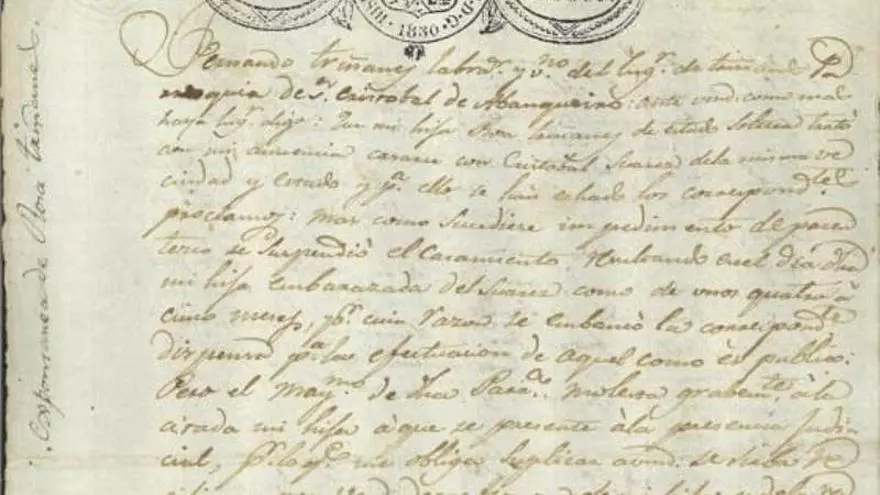 HISP. 1830. D. G.
Fernando triñanes labra.r y v.no del lug.r de tamane Pa
rroquia de S.n Cristobal de Abanqueiro: ante vmd. como mas
haya lug.r digo: Que mi hija Rosa tamanes de estado soltera trató
con mi anuencia casarse con Cristobal Suarez de la misma ve
cindad y estado y p.a ello se han echado los correspond.tes
proclamos: mas como sucediere impedimento de paren
terco se suspendió el Casamiento. Resultando en el dia
mi hija embarazada del Suarez como de unos quatro á
cinco meses, p.r cuia razon se embano la correspond.te
dispensa p.a la efectuacion de aquel como és publico:
Pero el may.mo de dha Parro.a molesta grabem.te á la
citada mi hija á que se presente á la presencia Judi
cial, p.r lo q.e me obliga suplicar á vmd. se sirba
mi hija
Espontanea de Rosa tamanes